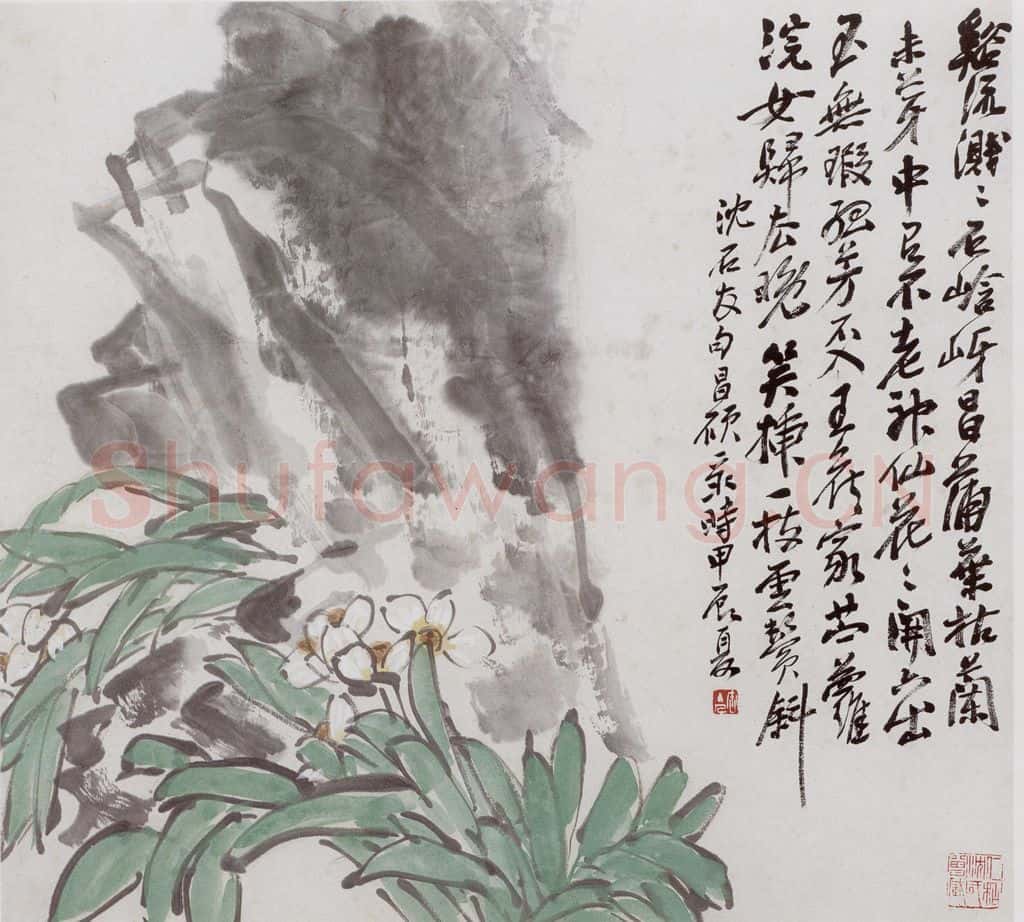 谿流濺〻石峆岈昌蒲葉枯蘭
未芽中有不老神仙花〻開六出
玉無瑕孤芳不入王侯家苎蘿
浣女歸去晚笑插一枝雲鬢斜
沈石友句昌碩录時甲辰夏
Shufawang.CN